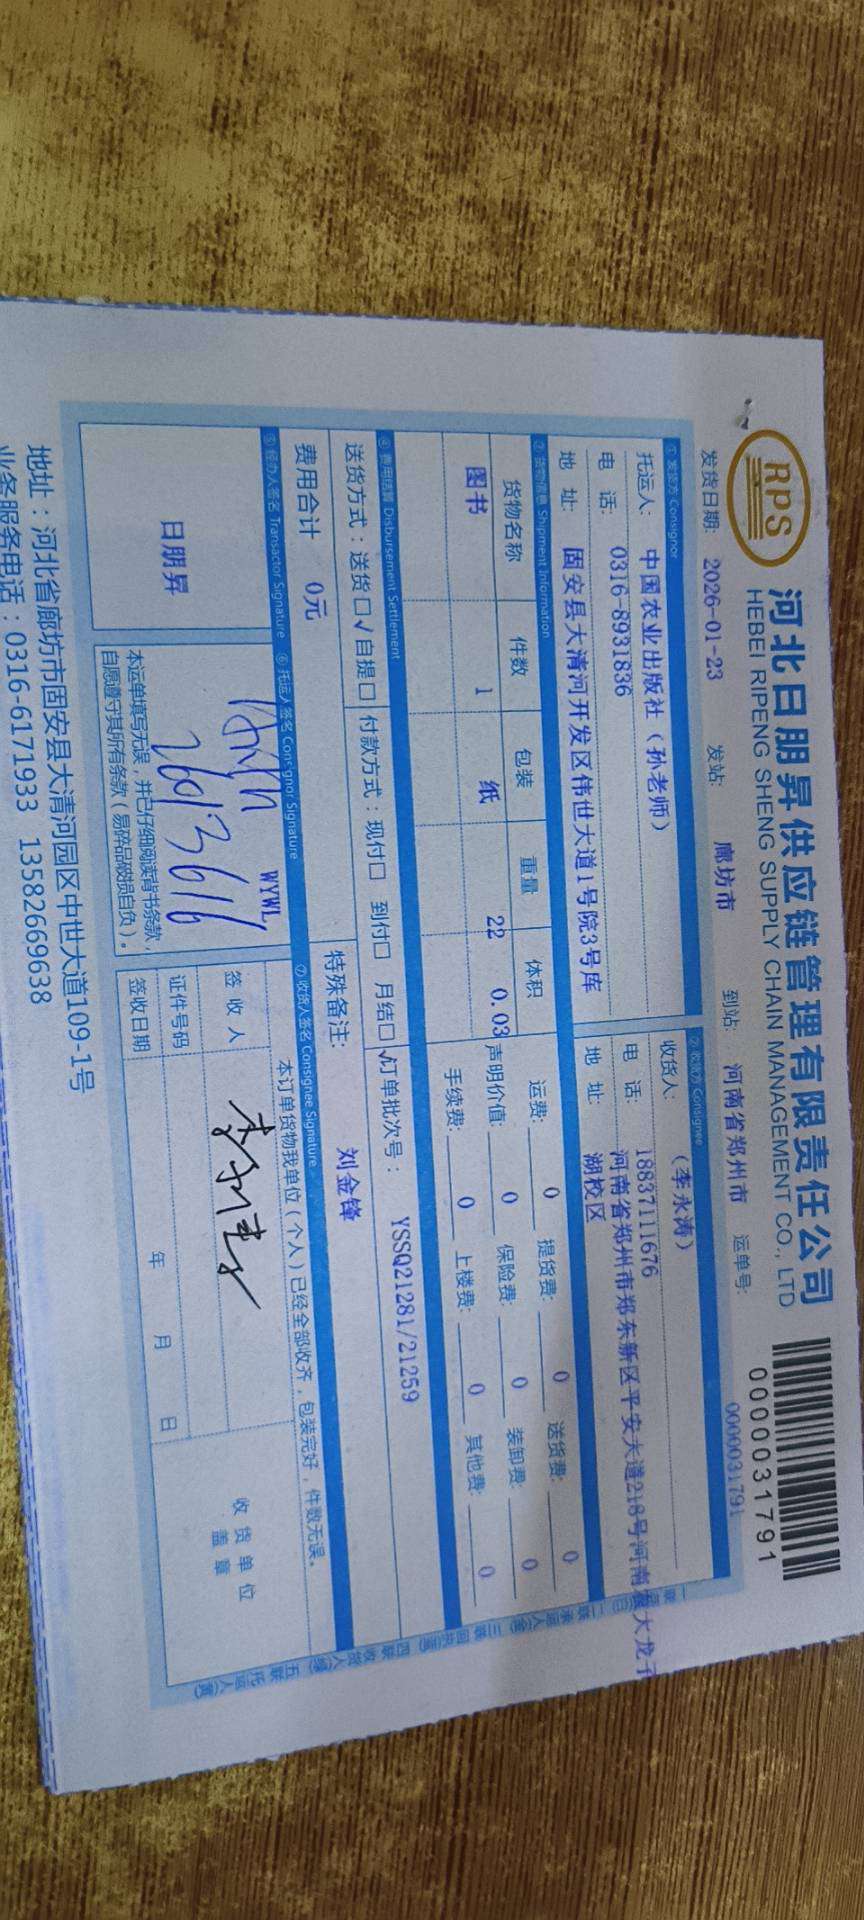 RPS
河北日朋昇供应链管理有限责任公司
HEBEI RIPENG SHENG SUPPLY CHAIN MANAGEMENT CO., LTD
0000031791
发货日期: 2026-01-23 发站: 廊坊市 到站: 河南省郑州市 运单号: 0000031791
① 发货方 Consignor
托运人: 中国农业出版社（孙老师）
电 话: 0316-8931836
地 址: 固安县大清河开发区伟世大道1号院3号库
② 收货方 Consignee
收货人: （李永涛）
电 话: 18837111676
地 址: 河南省郑州市郑东新区平安大道218号河南农大龙子
湖校区
③ 货物信息 Shipment Information
货物名称 件数 包装 重量 体积
图书 1 纸 22 0.03
运费: 0 提货费: 0 送货费: 0
声明价值: 0 保险费: 0 装卸费: 0
手续费: 0 上楼费: 0 其他费: 0
④ 费用结算 Disbursement Settlement
送货方式：送货□√ 自提□ 付款方式：现付□ 到付□ 月结□√ 订单批次号： YSSQ21281/21259
费用合计 0元 特殊备注: 刘金锋
⑤ 经办人签名 Transactor Signature
日朋昇
⑥ 托运人签名 Consignor Signature
WYWL
本运单填写无误，并已仔细阅读背书条款，
自愿遵守其所有条款（易碎品破损自负）。
⑦ 收货人签名 Consignee Signature
本订单货物我单位（个人）已经全部收齐，包装完好，件数无误。
签 收 人
证件号码
签收日期 年 月 日
收 货 单 位
盖 章
一联 二联承运人 三联回执 四联收货人 五联托运人
地址：河北省廊坊市固安县大清河园区中世大道109-1号
业务服务电话：0316-6171933 13582669638